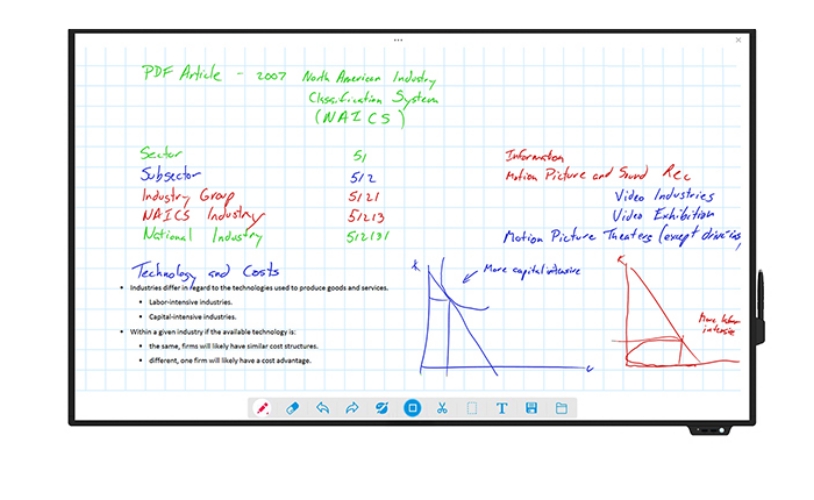 PDF Article - 2007 North American Industry
Classification System
(NAICS)
Sector 51 Information
Subsector 512 Motion Picture and Sound Rec
Industry Group 5121 Video Industries
NAICS Industry 51213 Video Exhibition
National Industry 512131 Motion Picture Theaters (except drive-ins,
Technology and Costs
K
More capital intensive
K
• Industries differ in regard to the technologies used to produce goods and services.
• Labor-intensive industries.
• Capital-intensive industries.
More labor
intensive
• Within a given industry if the available technology is:
• the same, firms will likely have similar cost structures.
• different, one firm will likely have a cost advantage.
L
T